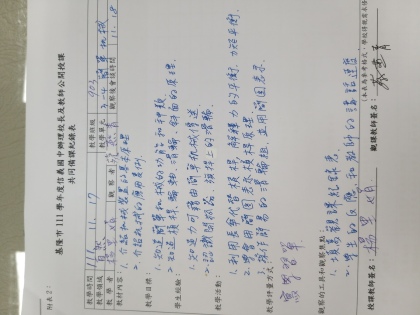 附表2：
基隆市 111 學年度信義國中辦理校長及教師公開授課
共同備課紀錄表
教學時間 111. 11. 17 教學班級 903
教學領域 自然 教學單元 3-4 簡單機械
教學者 楊里娟 觀察者 蔡燕青 觀察後會談時間 11.18
教材內容： 1. 介紹机械裝置的基本原理
2. 介紹机械的應用實例.
教學目標：
1. 知道簡單机械的功能和種類.
2. 知道槓桿、輪軸、滑輪、斜面的原理.
學生經驗：
1. 知道力可藉由簡單机械傳送.
2. 認識開瓶器、旗桿上的滑輪.
教學活動：
1. 利用長尺代替槓桿, 解釋力的平衡、力矩平衡.
2. 學會用簡圖表示槓桿原理.
3. 操作簡易的滑輪組, 並用簡圖表示.
教學評量方式：
寫學習單
觀察的工具和觀察焦點：
1. 填寫觀課紀錄表.
2. 學生的反應, 和教師的講話速度
授課教師簽名： 楊里娟 觀課教師簽名： 蔡燕青